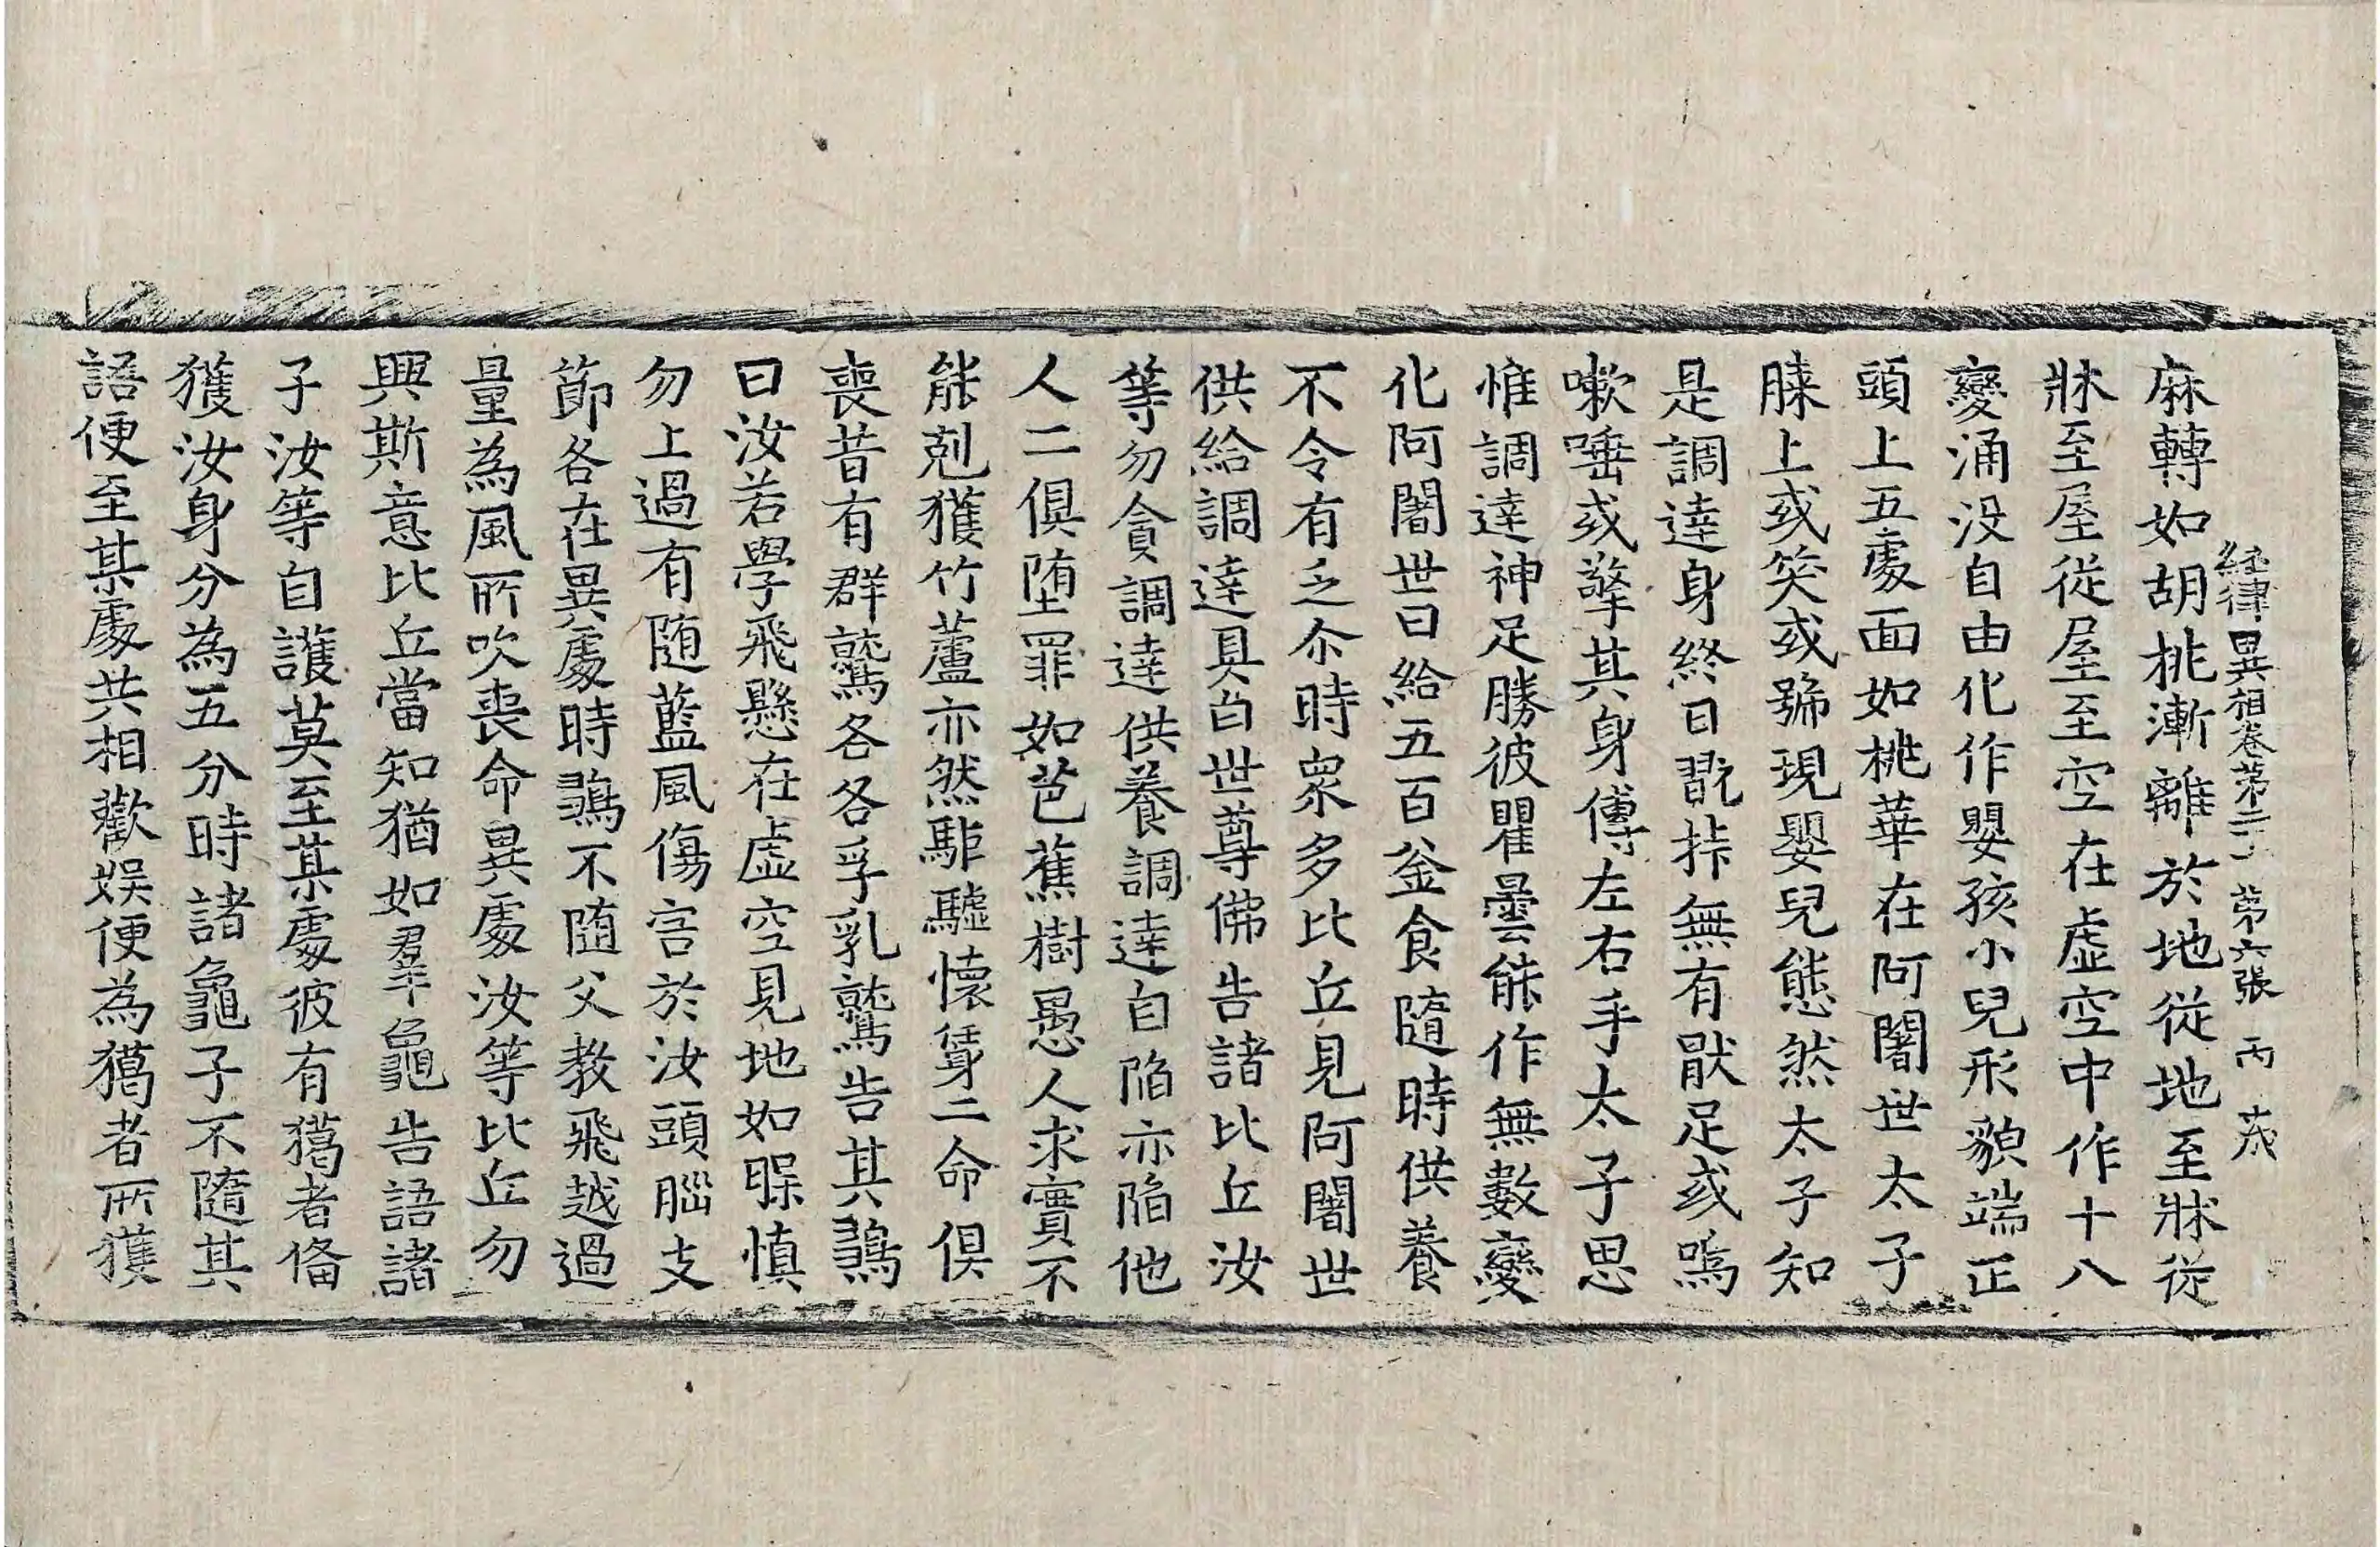 經律異相卷第二十一 第六張 丙 茂
麻轉如胡桃漸離於地從地至牀從
牀至屋從屋至空在虛空中作十八
變涌沒自由化作嬰孩小兒形貌端正
頭上五處面如桃華在阿闍世太子
膝上或笑或號現嬰兒態然太子知
是調達身終日翫抃無有猒足或嗚
嗽唾或擎其身傅左右手太子思
惟調達神足勝彼瞿曇能作無數變
化阿闍世日給五百釜食隨時供養
不令有乏尒時衆多比丘見阿闍世
供給調達具白世尊佛告諸比丘汝
等勿貪調達供養調達自陷亦陷他
人二俱墮罪如芭蕉樹愚人求實不
能剋獲竹蘆亦然駏驉懷㜸二命俱
喪昔有群鷲各各孚乳鷲告其鵶
曰汝若學飛懸在虛空見地如𣊻慎
勿上過有隨藍風傷害於汝頭腦支
節各在異處時鵶不隨父教飛越過
量為風所吹喪命異處汝等比丘勿
興斯意比丘當知猶如羣龜告語諸
子汝等自護莫至某處彼有獦者俻
獲汝身分為五分時諸龜子不隨其
語便至某處共相歡娛便為獦者所獲